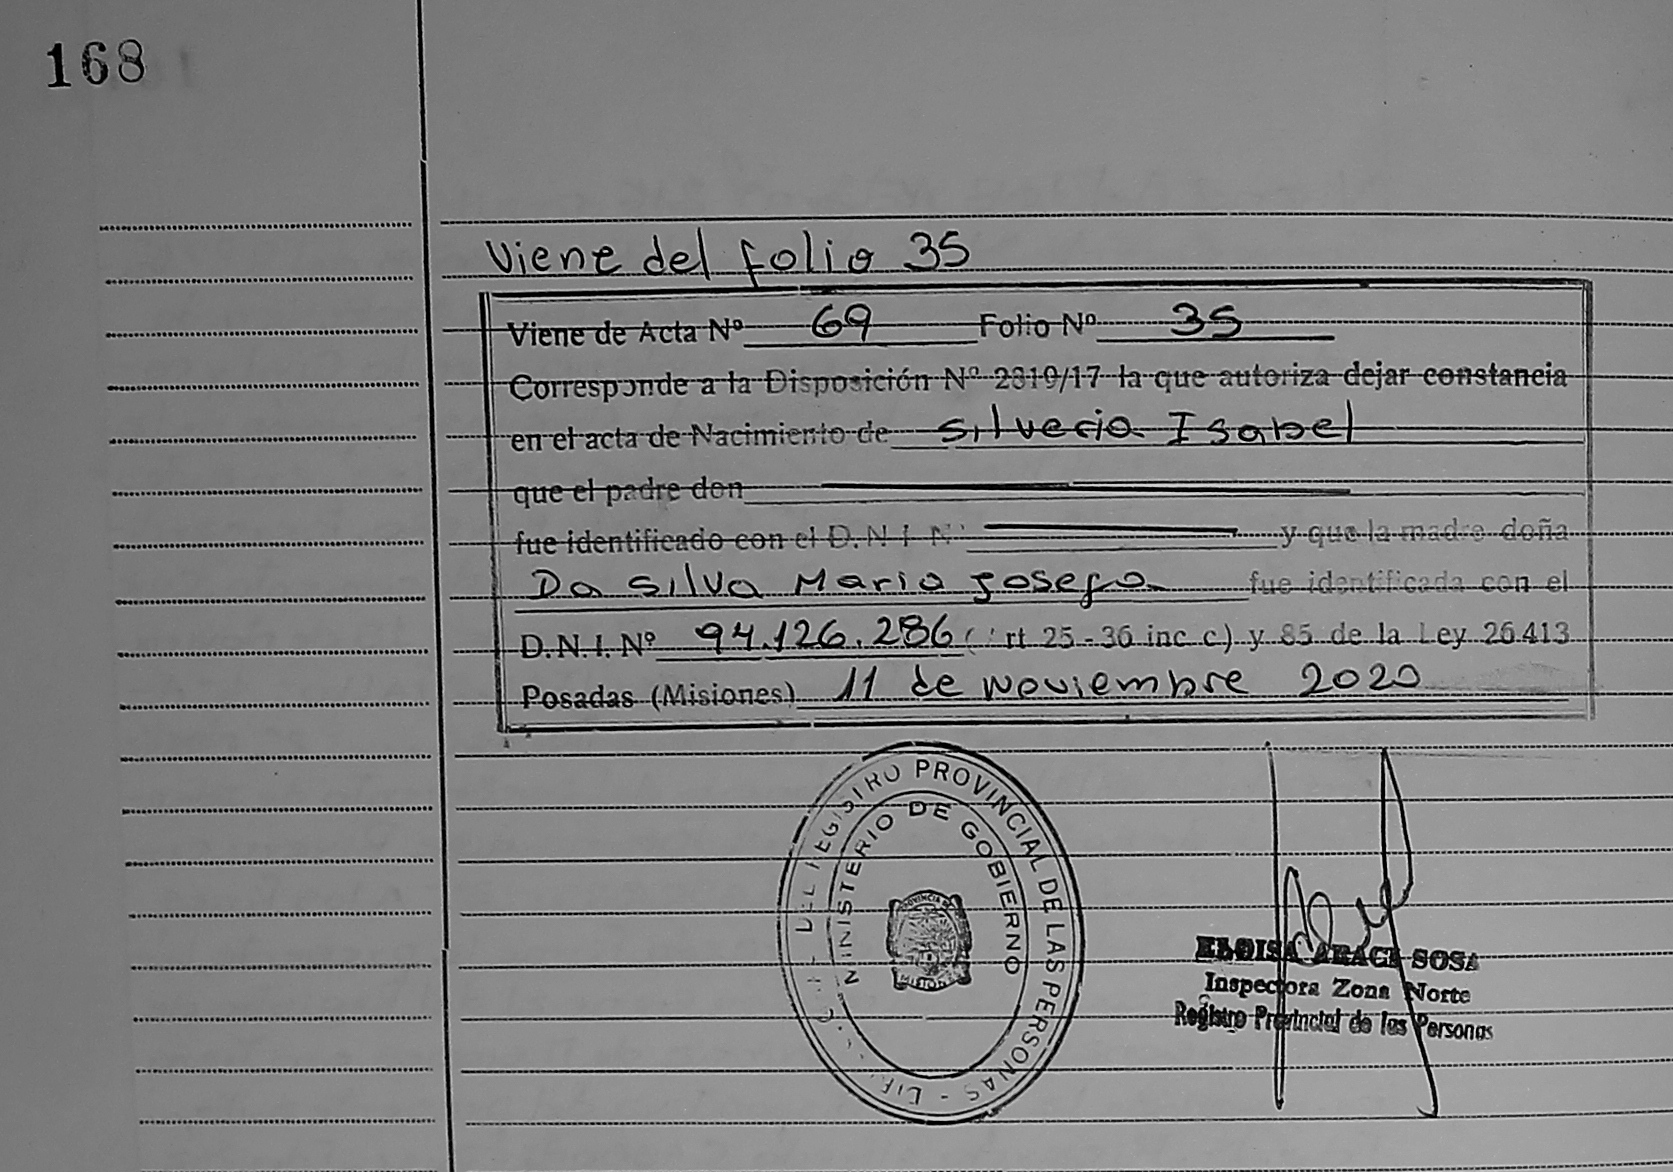 168
Viene del folio 35
Viene de Acta Nº 69 Folio Nº 35
Corresponde a la Disposición Nº 2819/17 la que autoriza dejar constancia
en el acta de Nacimiento de Silveria Isabel
que el padre don
fue identificado con el D.N.I. Nº y que la madre doña
Da Silva Maria Josefa fue identificada con el
D.N.I. Nº 94.126.286 (Art 25-36 inc c) y 85 de la Ley 26413
Posadas (Misiones) 11 de Noviembre 2020
REGISTRO PROVINCIAL DE LAS PERSONAS
MINISTERIO DE GOBIERNO
PROVINCIA DE
MISIONES
SOSA
Inspectora Zona Norte
Registro Provincial de las Personas